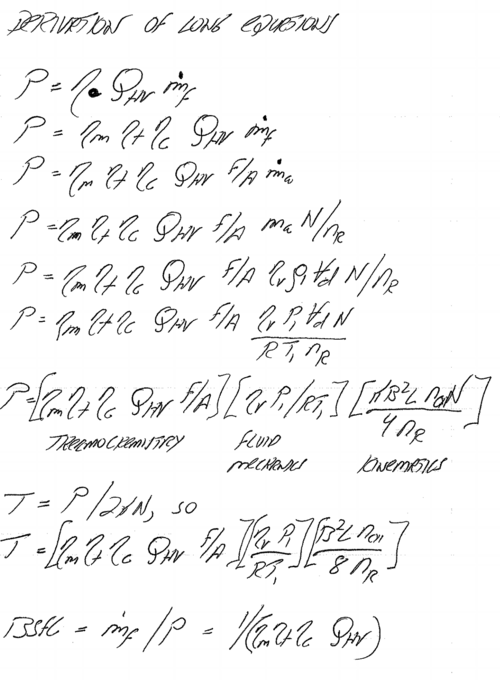 DERIVATION OF LONG EQUATIONS
P = η₀ Q_HV ṁ_f
P = η_m η_t η_c Q_HV ṁ_f
P = η_m η_t η_c Q_HV F/A ṁ_a
P = η_m η_t η_c Q_HV F/A m_a N/n_R
P = η_m η_t η_c Q_HV F/A η_v ρ_i V_d N/n_R
P = η_m η_t η_c Q_HV F/A η_v P_i V_d N / R T_i n_R
P = [η_m η_t η_c Q_HV F/A] [η_v P_i/RT_i] [πB²L n_cyl N / 4 n_R]
THERMOCHEMISTRY FLUID MECHANICS KINEMATICS
T = P/2πN, so
T = [η_m η_t η_c Q_HV F/A] [η_v P_i / RT_i] [B²L n_cyl / 8 n_R]
BSFC = ṁ_f / P = 1/(η_m η_t η_c Q_HV)